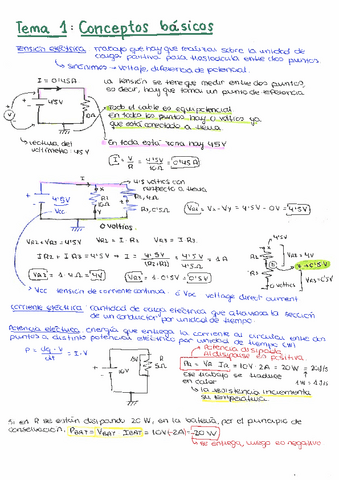 Tema 1: Conceptos básicos
Tensión eléctrica: trabajo que hay que realizar sobre la unidad de
carga positiva para trasladarla entre dos puntos
↳ sinónimos → voltaje, diferencia de potencial.
I = 0'45A
La tensión se tiene que medir entre dos puntos,
es decir, hay que tomar un punto de referencia
4'5V
10Ω
Todo el cable es equipotencial
en todos los puntos hay 0 voltios ya
que está conectado a tierra
↳ lectura del
voltímetro: 4'5V
En toda esta zona hay 4'5V
I = V/R = 4'5V/10Ω = 0'45A
I
4'5 voltios con
respecto a tierra
4'5V
Vcc
R1, 4Ω
R2, 0'5Ω
VR2 = Vx - Vy = 4'5V - 0V = 4'5V
0 voltios
VR1 + VR2 = 4'5V
VR1 = I · R1
VR2 = I · R2
I R2 + I R1 = 4'5V → I = 4'5V / (R2+R1) = 4'5V / 4'5Ω = 1A
VR1 = 1 · 4Ω = 4V
VR2 = 1 · 0'5V = 0'5V
4'5V
VR1 = 4V
→ 0'5V
VR2 = 0'5V
0 voltios
Vcc tensión de corriente continua. ó VDC voltage direct current
Corriente eléctrica: cantidad de carga eléctrica que atraviesa la sección
de un conductor por unidad de tiempo
Potencia eléctrica: energía que entrega la corriente al circular entre dos
puntos a distinto potencial eléctrico por unidad de tiempo (W)
P = dq · V / dt = I · V
10V
R
5Ω
Potencia disipada
Al disiparse es positiva
PR = VR IR = 10V · 2A = 20W → 20J/s
Ese trabajo se traduce
en calor
1W = 1J/s
↳ la resistencia incrementa
su temperatura
Si en R se están disipando 20W, en la batería, por el principio de
conservación: PBAT = VBAT IBAT = 10V(-2A) = -20W
↳ se entrega, luego es negativo